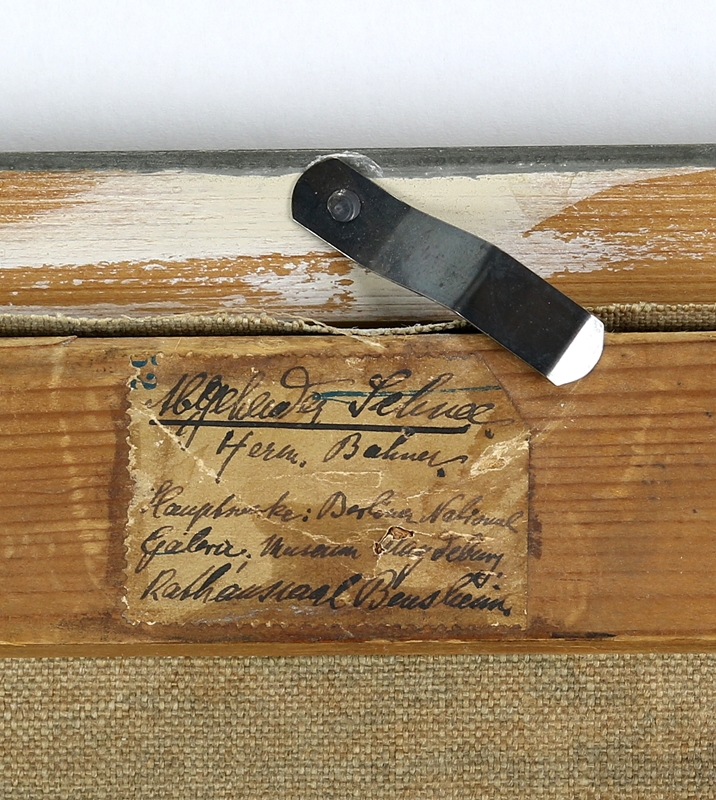 Abgehender Schnee
Herm. Bahner.
Hauptwerke: Berliner National
Galerie. Museum Magdeburg
Rathaussaal Bensheim.